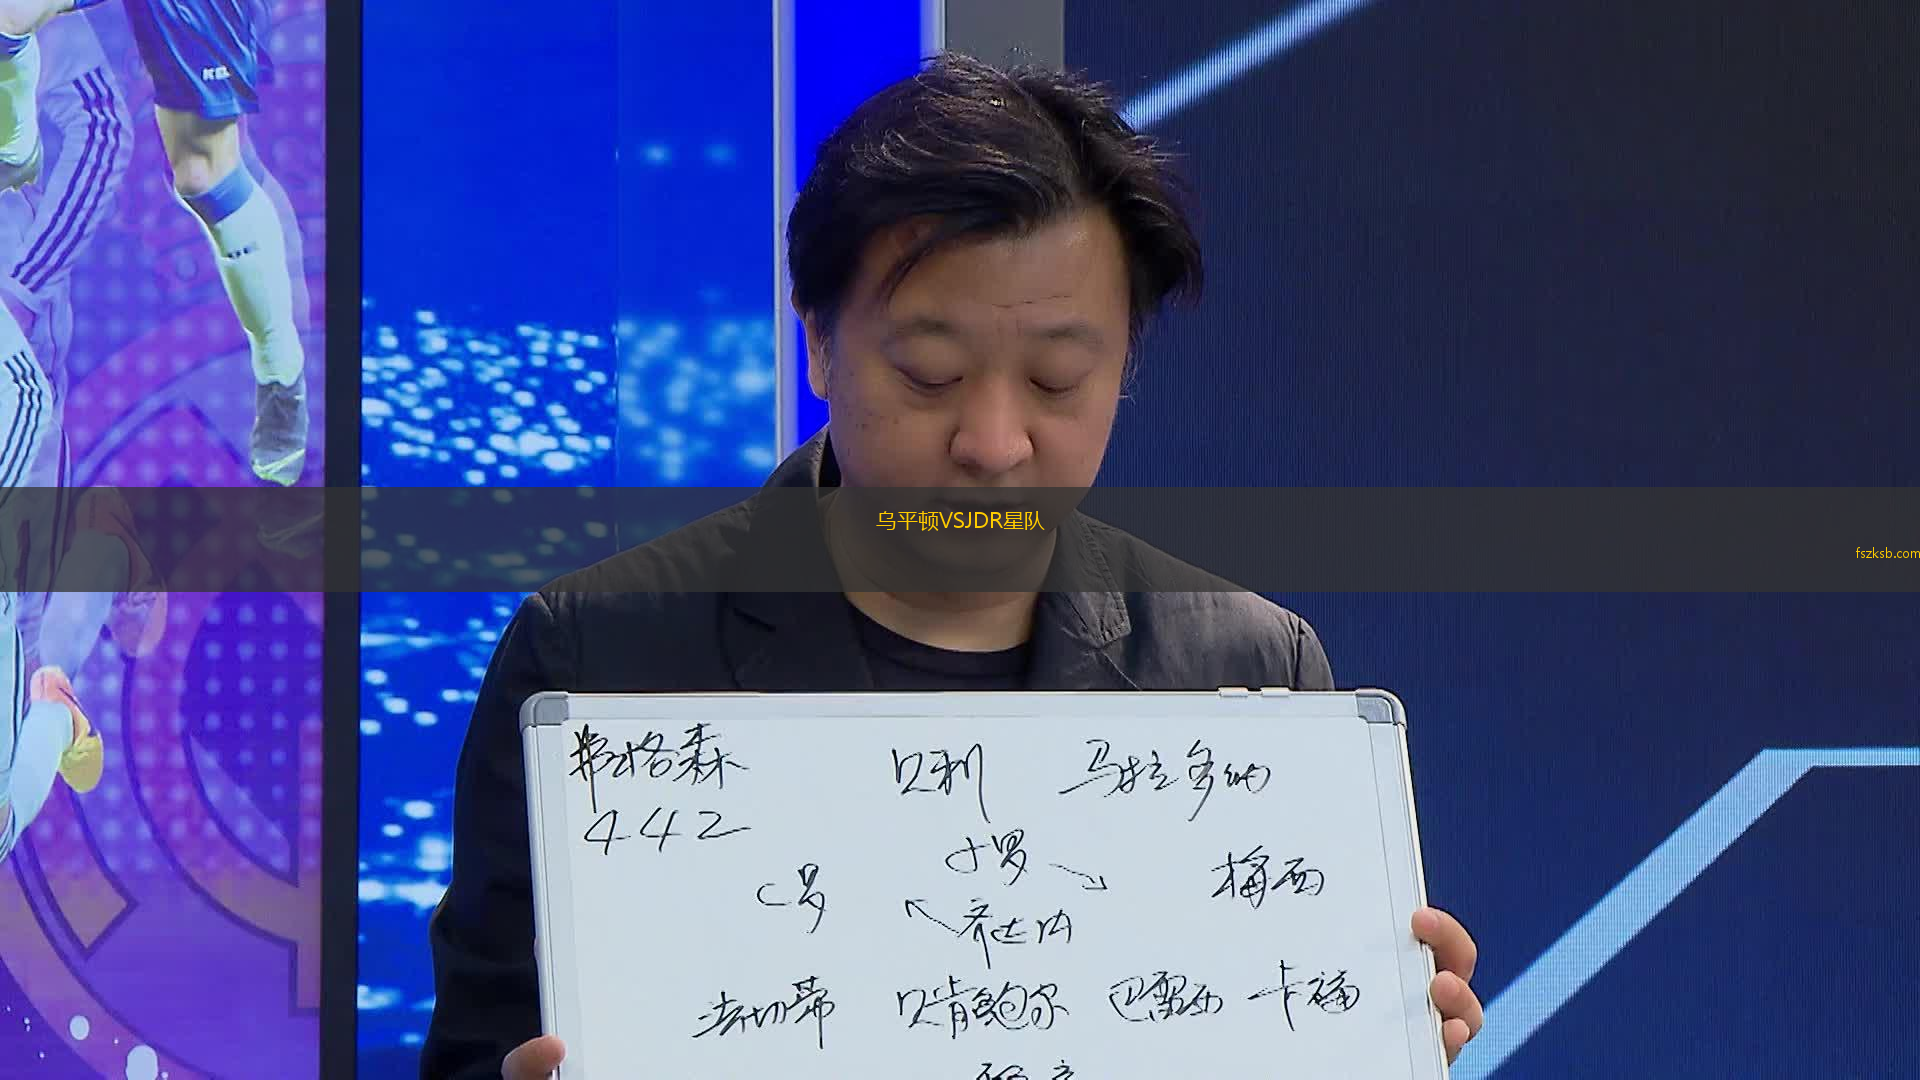 乌平顿VSJDR星队
fszksb.com
弗格森 贝利 马拉多纳
442
小罗
C罗 梅西
齐达内
法切蒂 贝肯鲍尔 巴雷西 卡福